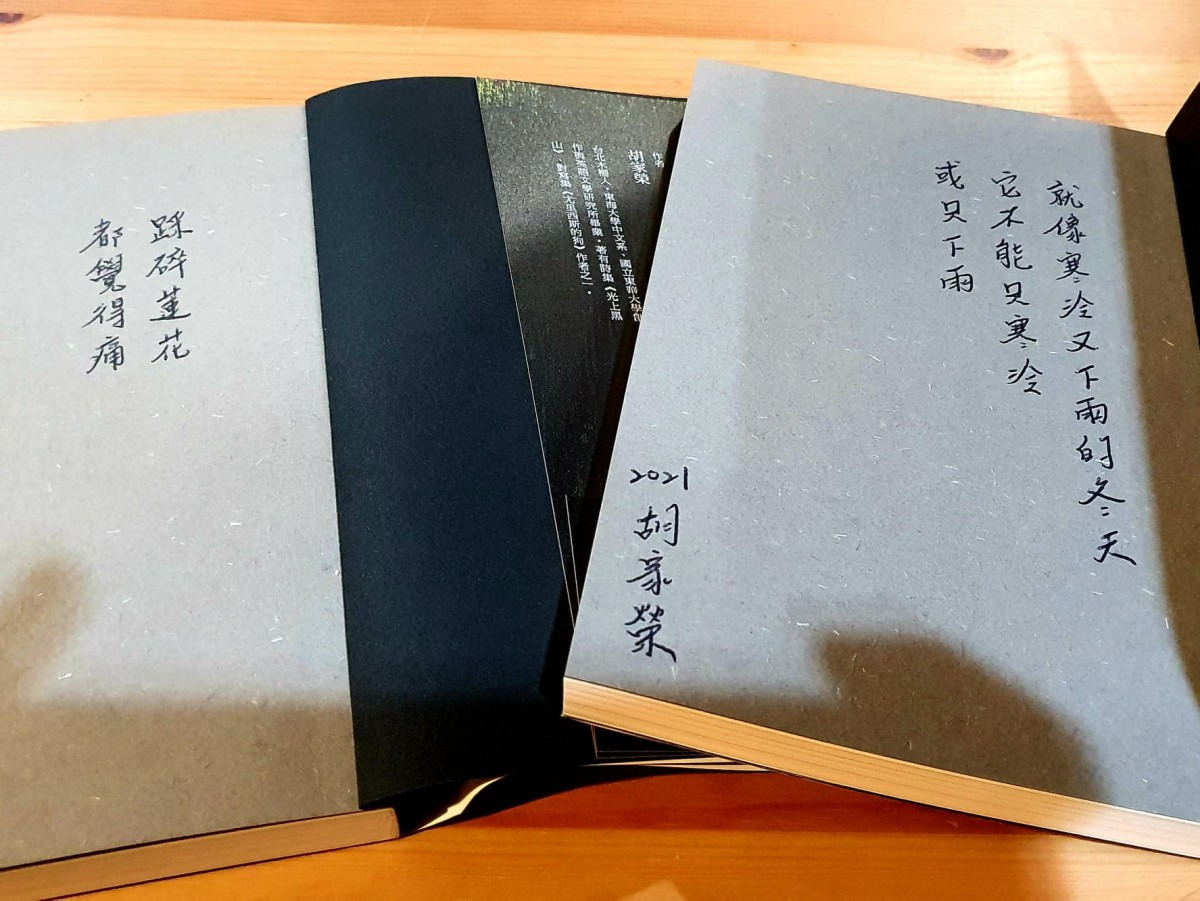 踩碎蓮花
都覺得痛
作者
胡家榮
台北木柵人。東海大學中文系、國立東華大學創
作與英語文學研究所畢業。著有詩集《光上黑
山》，對寫集《尤里西斯的狗》作者之一。
就像寒冷又下雨的冬天
它不能只寒冷
或只下雨
2021
胡家榮